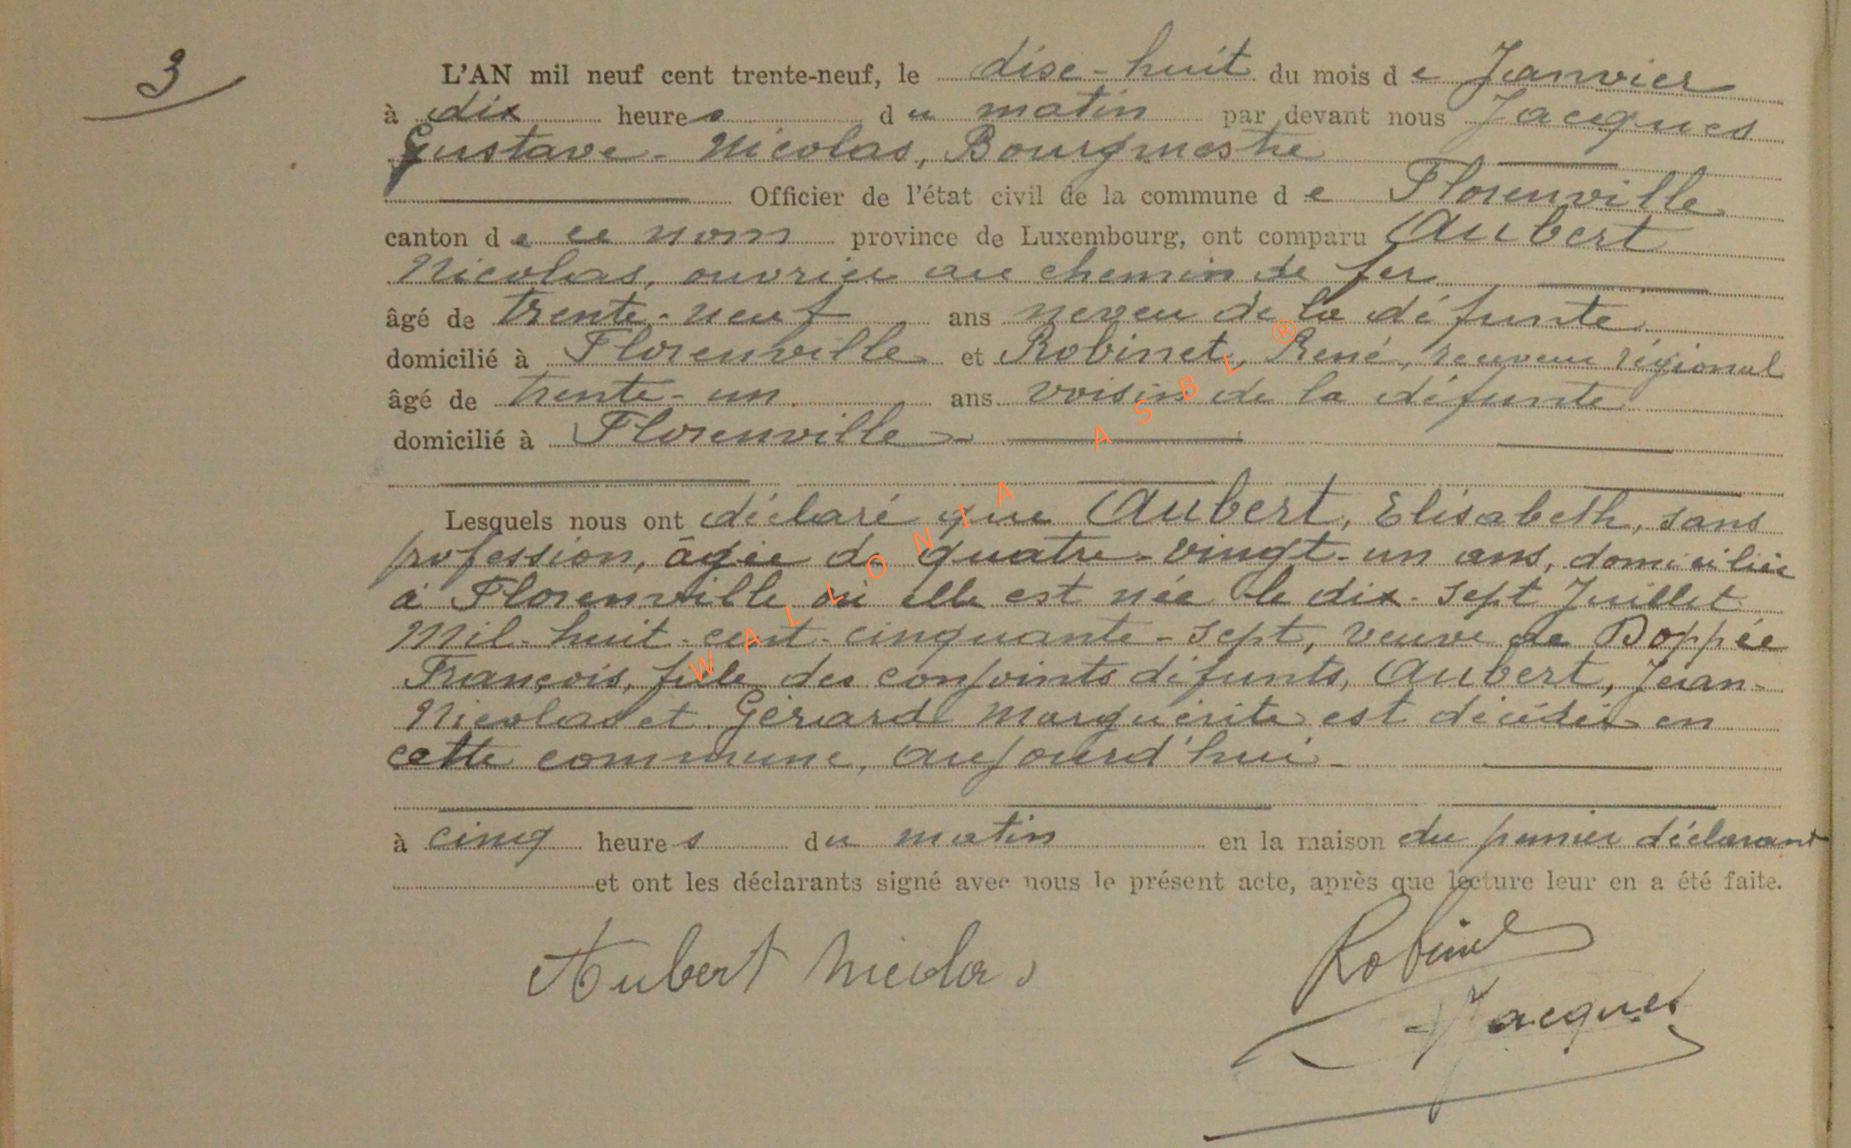 3
L'AN mil neuf cent trente-neuf, le dise-huit du mois de Janvier
à dix heures du matin par devant nous Jacques
Gustave-Nicolas, Bourgmestre
Officier de l'état civil de la commune de Florenville
canton de ce nom province de Luxembourg, ont comparu Aubert
Nicolas, ouvrier au chemin de fer
âgé de trente-neuf ans neveu de la défunte
domicilié à Florenville et Robinet, René, receveur régional
âgé de trente-un ans voisin de la défunte
domicilié à Florenville
Lesquels nous ont déclaré que Aubert, Elisabeth, sans
profession, âgée de quatre-vingt-un ans, domiciliée
à Florenville où elle est née le dix-sept Juillet
Mil-huit-cent-cinquante-sept, veuve de Doppée
François, fille des conjoints défunts, Aubert, Jean-
Nicolas et Gérard Marguérite est décédée en
cette commune, aujourd'hui
à cinq heures du matin en la maison du premier déclarant
et ont les déclarants signé avec nous le présent acte, après que lecture leur en a été faite.
Aubert Nicolas
Robinet
Jacques
WALLONIA ASBL ®